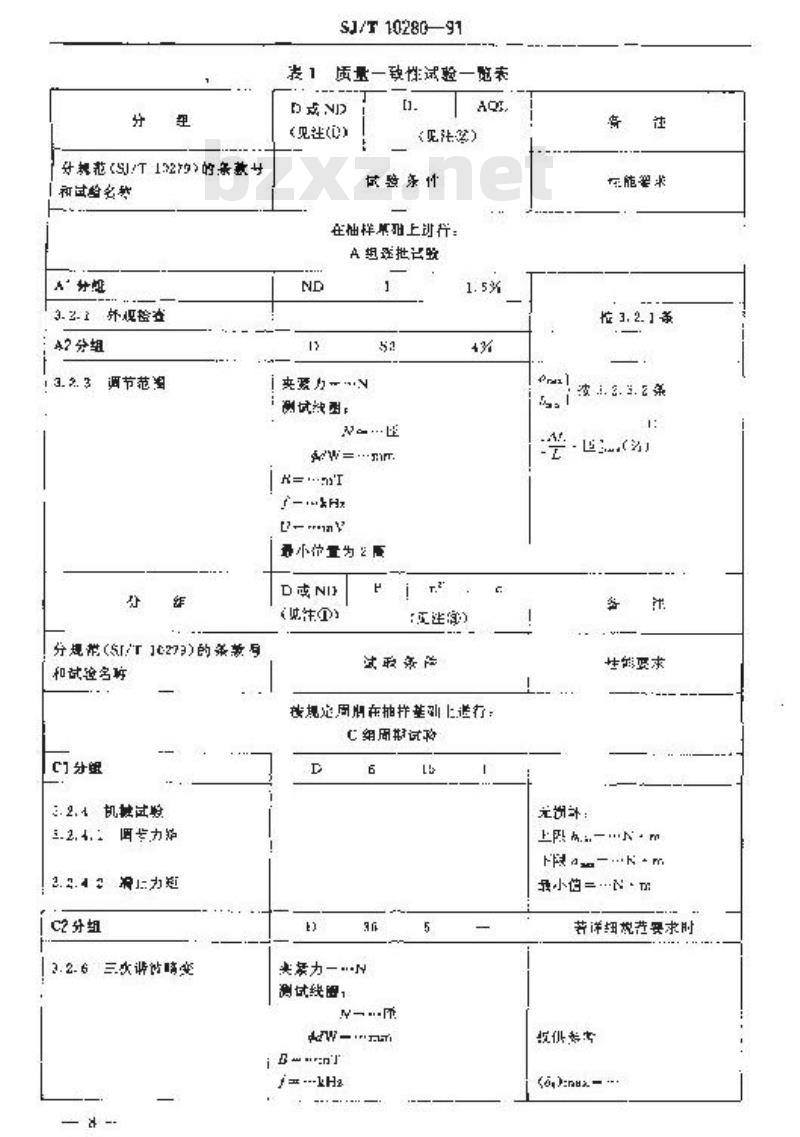 SJ/T 10280—91
表1 质量一致性试验一览表
分 组
D或ND
(见注①)
IL
AQL
(见注②)
备 注
分规范(SJ/T 10279)的条款号
和试验名称
试验条件
性能要求
bzxz.net
在抽样基础上进行:
A组逐批试验
A1分组
ND
1.5%
3.2.1 外观检查
按3.2.1条
A2分组
D
S3
4%
3.2.3 调节范围
夹紧力=…N
测试线圈:
N=…匝
mm
f=…kHz
U=…mV
最小位置为2
按3.2.3.2条
分 组
D或ND
(见注①)
p
n
c
(见注③)
备 注
分规范(SJ/T 10279)的条款号
和试验名称
试验条件
性能要求
按规定周期在抽样基础上进行:
C组周期试验
C1分组
D
6
15
1
3.2.4 机械试验
3.2.4.1 调节力矩
3.2.4.2 停止力矩
无损坏:
上限
下限
最小值=…N·m
C2分组
D
36
5
—
若详细规范要求时
3.2.6 三次谐波畸变
夹紧力=…N
测试线圈:
N=…匝
mm
B=…mT
f=…kHz
仅供参考
max=…
— 8 —